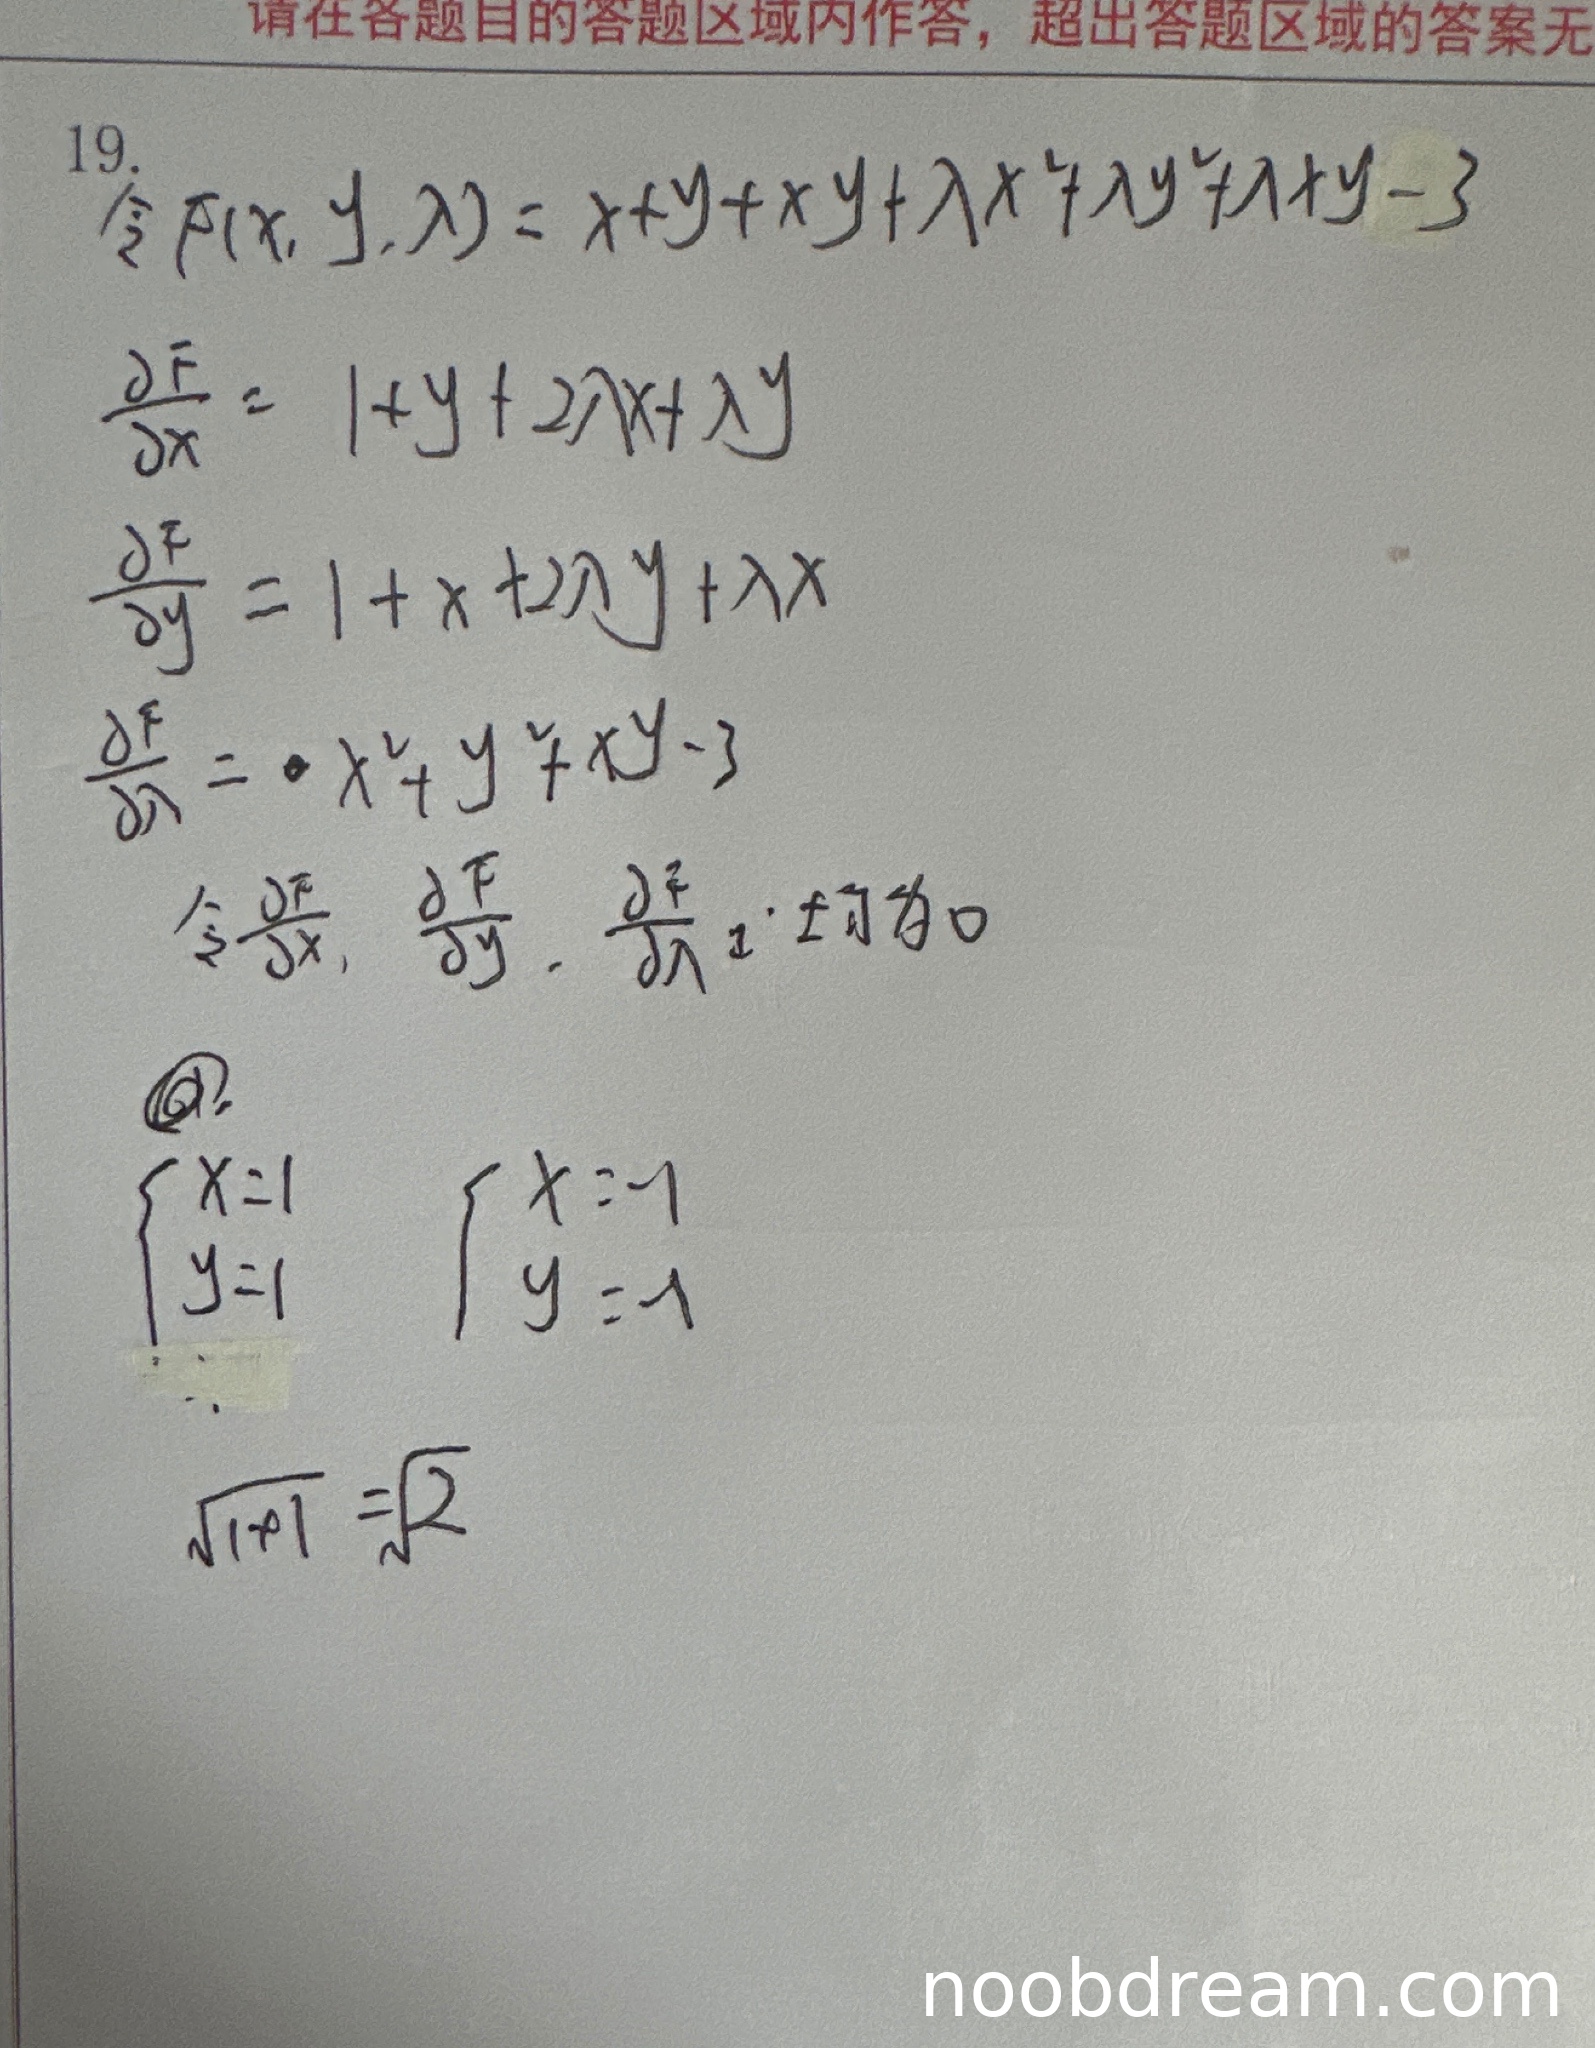 请在各题目的答题区域内作答，超出答题区域的答案无
19.
令F(x, y, λ) = x+y+xy+λx²+λy²+λxy-3
∂F/∂x = 1+y+2λx+λy
∂F/∂y = 1+x+2λy+λx
∂F/∂λ = x²+y²+xy-3
令∂F/∂x, ∂F/∂y, ∂F/∂λ 均为0
{x=1 {x=-1
y=1 y=-1
√1+1 =√2
noobdream.com